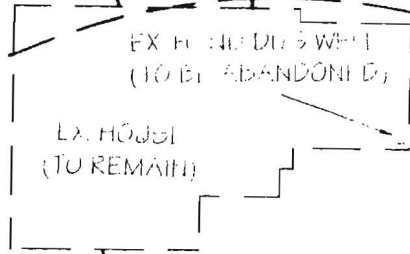 EX. HAND DUG WELL
(TO BE ABANDONED)
EX. HOUSE
(TO REMAIN)